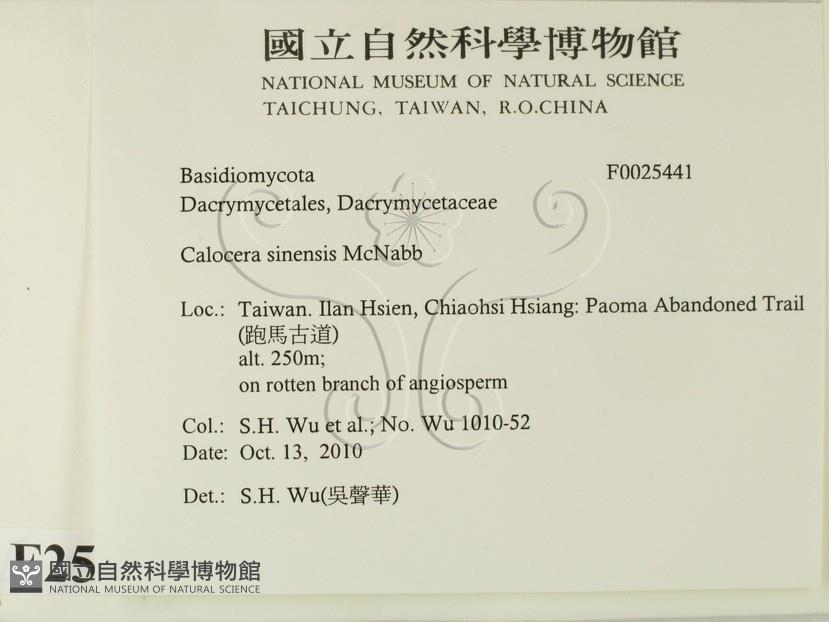 國立自然科學博物館
NATIONAL MUSEUM OF NATURAL SCIENCE
TAICHUNG, TAIWAN, R.O.CHINA
Basidiomycota F0025441
Dacrymycetales, Dacrymycetaceae
Calocera sinensis McNabb
Loc.: Taiwan. Ilan Hsien, Chiaohsi Hsiang: Paoma Abandoned Trail
(跑馬古道)
alt. 250m;
on rotten branch of angiosperm
Col.: S.H. Wu et al.; No. Wu 1010-52
Date: Oct. 13, 2010
Det.: S.H. Wu(吳聲華)
F25
國立自然科學博物館
NATIONAL MUSEUM OF NATURAL SCIENCE